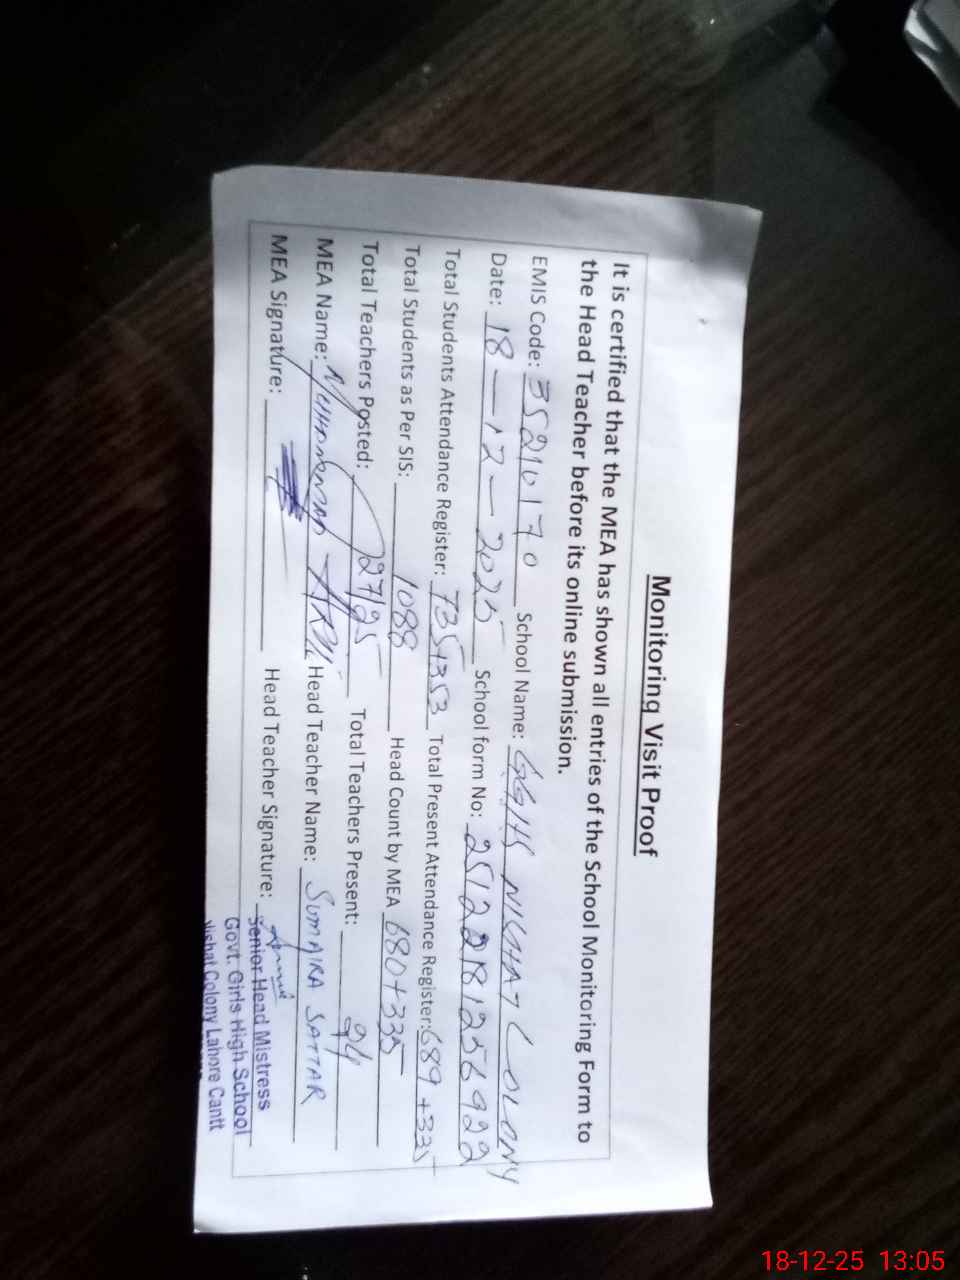 Monitoring Visit Proof
It is certified that the MEA has shown all entries of the School Monitoring Form to
the Head Teacher before its online submission.
EMIS Code: 35210170 School Name: GGHS NISHAT COLONY
Date: 18-12-2025 School form No: 25122181256922
Total Students Attendance Register: 735+353 Total Present Attendance Register: 689+335
Total Students as Per SIS: 1088 Head Count by MEA 680+335
Total Teachers Posted: 27/25 Total Teachers Present: 24
MEA Name: Muhammad Head Teacher Name: SUMAIRA SATTAR
MEA Signature: Head Teacher Signature:
Senior Head Mistress
Govt. Girls High School
Nishat Colony Lahore Cantt
18-12-25 13:05